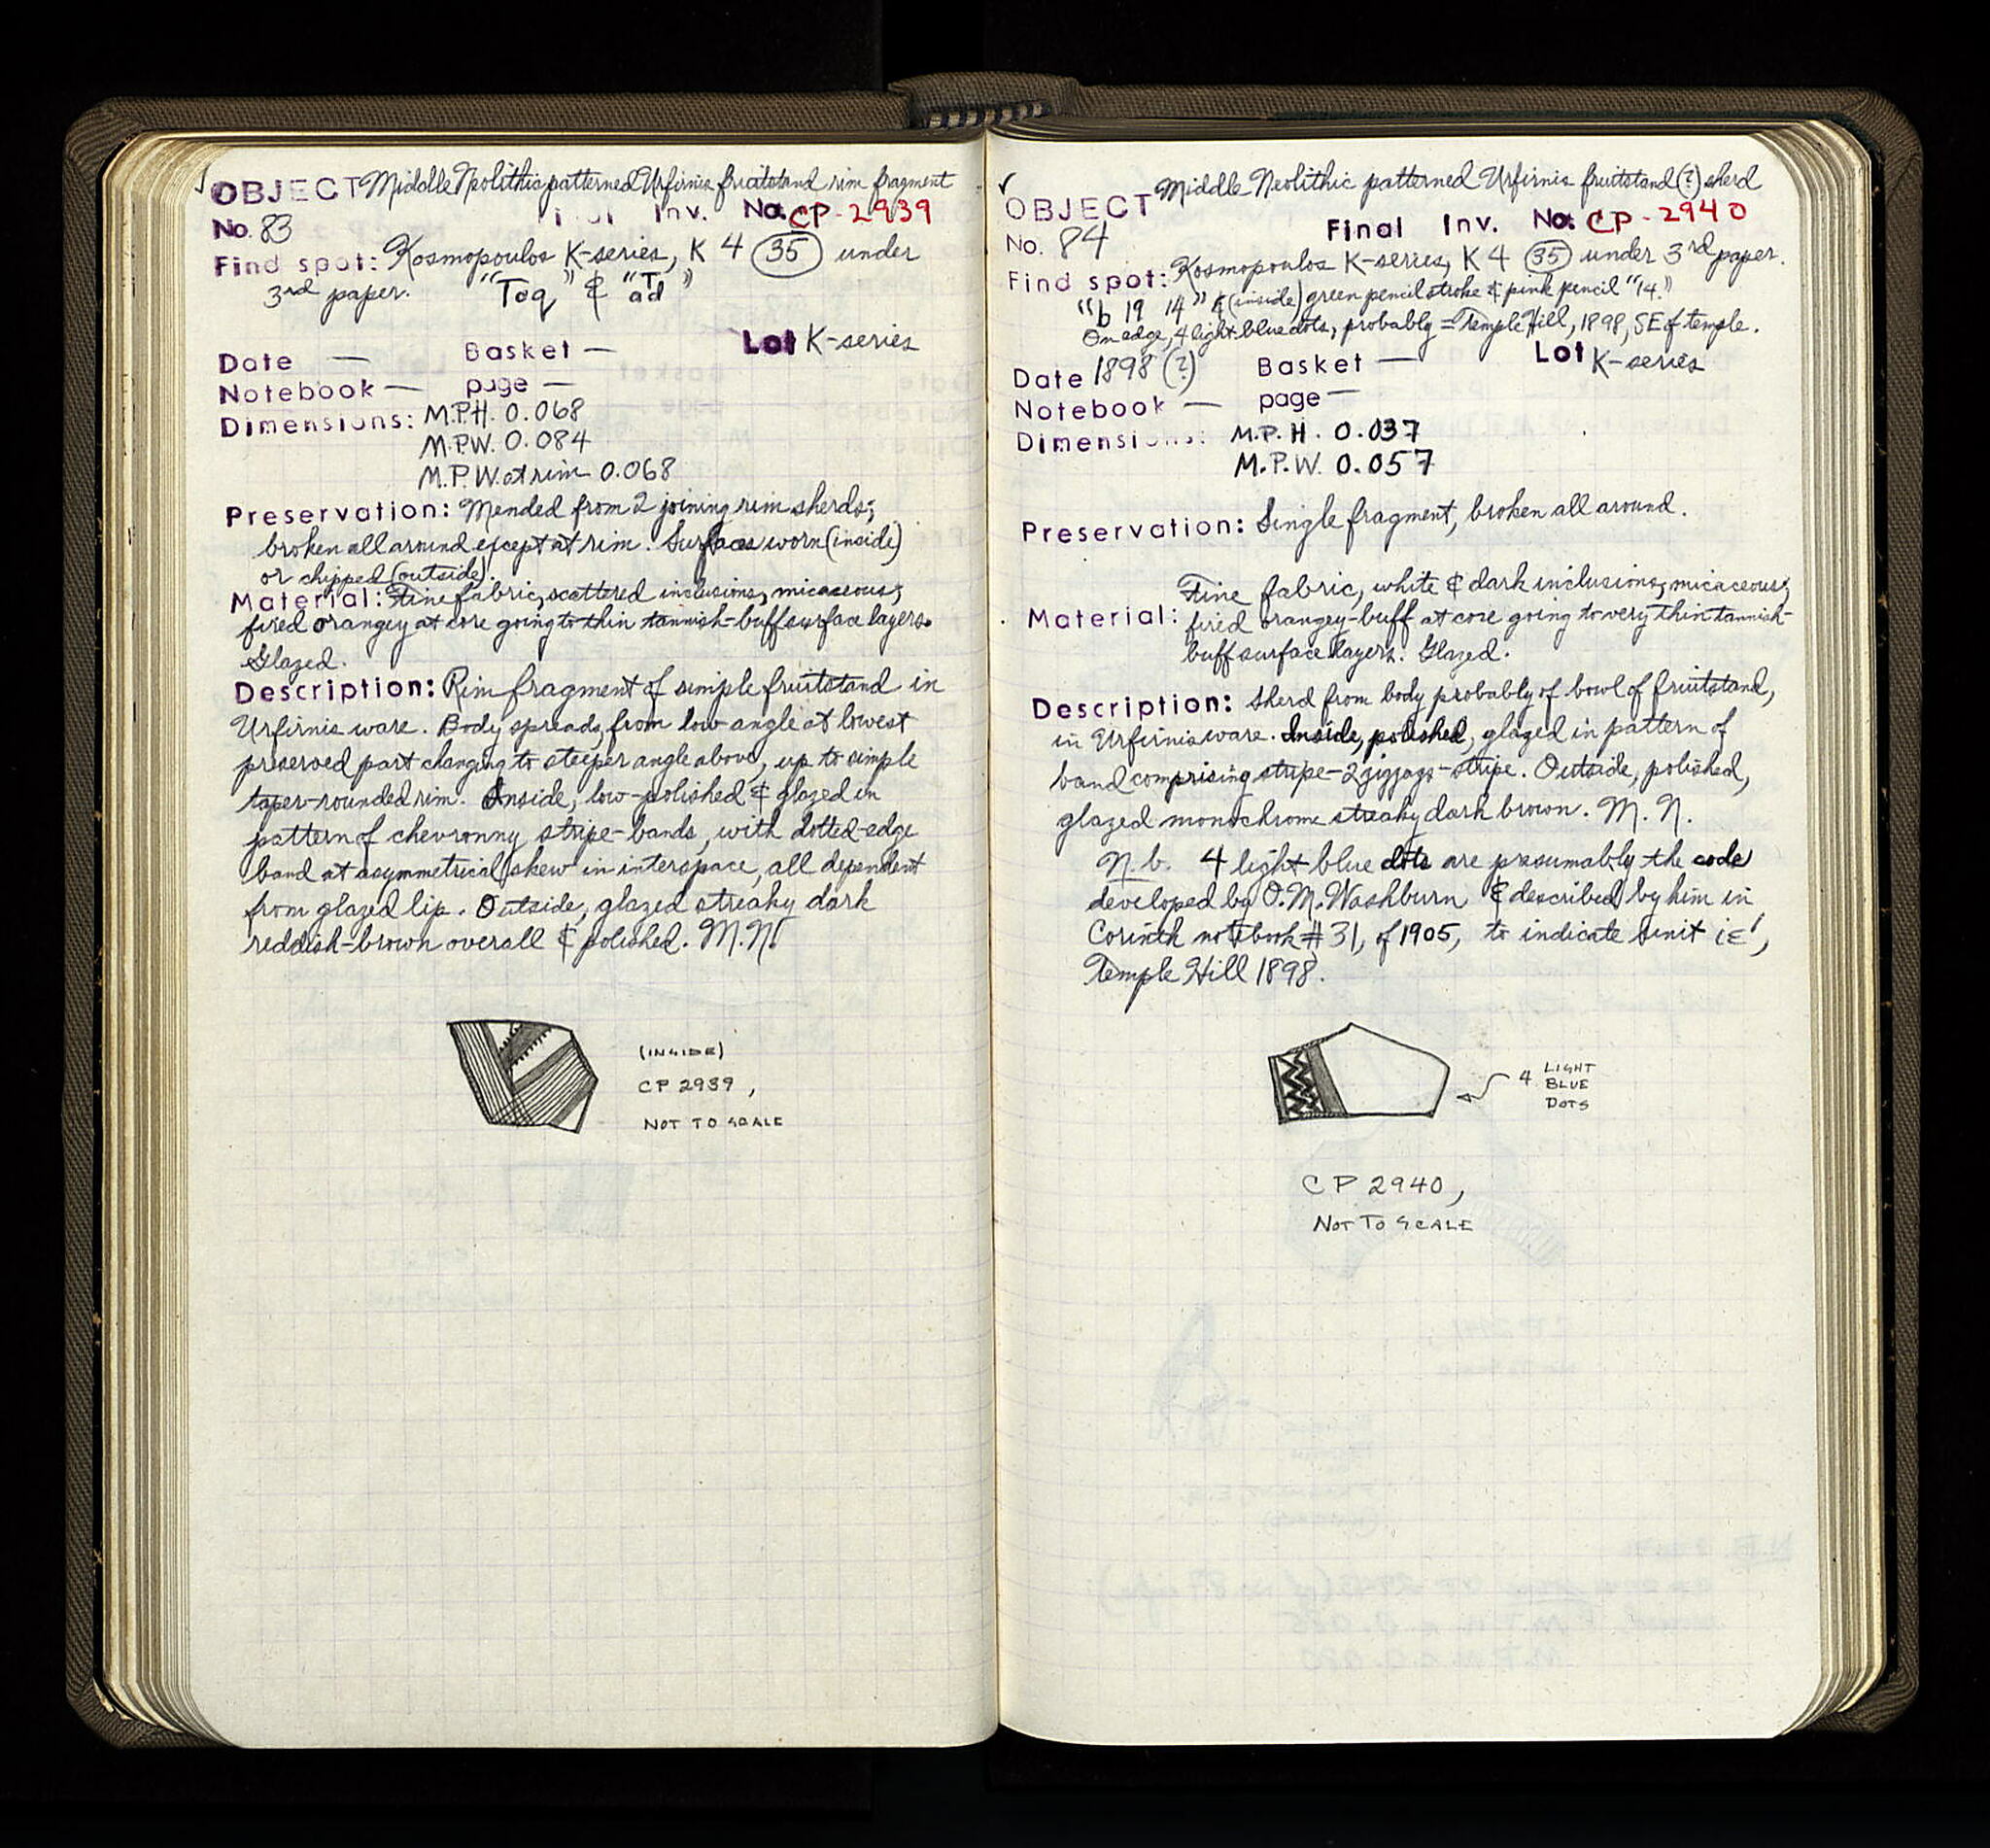 ✓ OBJECT Middle Neolithic patterned Urfirnis fruitstand rim fragment
No. 83 Final Inv. No. CP-2939
Find spot: Kosmopoulos K-series, K 4 (35) under
3rd paper. "Toq" & "T ad"
Lot K-series
Date — Basket —
Notebook — page —
Dimensions: M.P.H. 0.068
M.P.W. 0.084
M.P.W. at rim 0.068
Preservation: Mended from 2 joining rim sherds;
broken all around except at rim. Surfaces worn (inside)
or chipped (outside).
Material: Fine fabric, scattered inclusions, micaceous;
fired orangey at core going to thin tannish-buff surface layers.
Glazed.
Description: Rim fragment of simple fruitstand in
Urfirnis ware. Body spreads from low angle at lowest
preserved part changing to steeper angle above, up to simple
taper-rounded rim. Inside, low-polished & glazed in
pattern of chevronny stripe-bands, with dotted-edge
band at asymmetrical skew in interspace, all dependent
from glazed lip. Outside, glazed streaky dark
reddish-brown overall & polished. M.N.
(INSIDE)
CP 2939,
NOT TO SCALE
✓ Middle Neolithic patterned Urfirnis fruitstand (?) sherd
OBJECT
No. 84 Final Inv. No. CP-2940
Find spot: Kosmopoulos K-series, K 4 (35) under 3rd paper.
"b 19 14" & (inside) green pencil stroke & pink pencil "14."
On edge, 4 light blue dots, probably = Temple Hill, 1898, SE of temple.
Date 1898 (?) Basket — Lot K-series
Notebook — page —
Dimensions: M.P.H. 0.037
M.P.W. 0.057
Preservation: Single fragment, broken all around.
Fine fabric, white & dark inclusions, micaceous;
Material: fired orangey-buff at core going to very thin tannish-
buff surface layers. Glazed.
Description: Sherd from body probably of bowl of fruitstand,
in Urfirnis ware. Inside, polished, glazed in pattern of
band comprising stripe-2 zigzags-stripe. Outside, polished,
glazed monochrome streaky dark brown. M.N.
N.b. 4 light blue dots are presumably the code
developed by O.M. Washburn & described by him in
Corinth notebook #31, of 1905, to indicate Unit ιε',
Temple Hill 1898.
4 LIGHT
BLUE
DOTS
CP 2940,
NOT TO SCALE